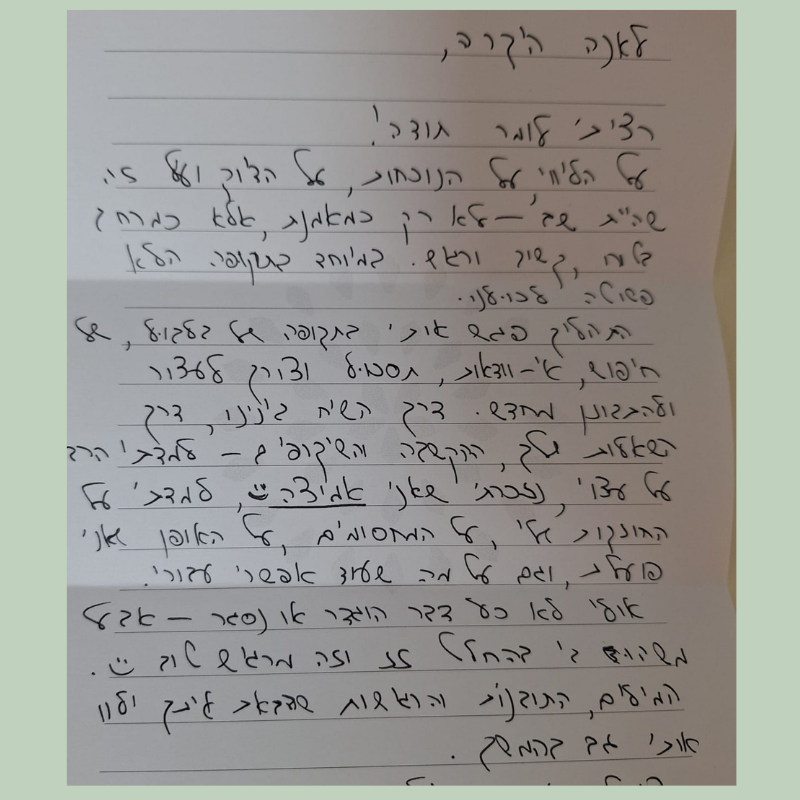 לאנה היקרה,
רציתי לומר תודה!
על הליווי, על הנוכחות, על הדיוק ועל זה
שהיית שם – לא רק כמאמנת, אלא כמרחב
בטוח, קשוב ורגיש. במיוחד בתקופה הלא
פשוטה לכולנו.
התהליך פגש אותי בתקופה של בלבול, של
חיפוש, אי-וודאות, תסכול וצורך לעצור
ולהתבונן מחדש. דרך השיח בינינו, דרך
השאלות שלך, ההקשבה והשיקופים – למדתי הרבה
על עצמי, נזכרתי שאני אמיצה, למדתי על
החוזקות שלי, על המחסומים, על האופן שאני
פועלת, וגם על מה שעוד אפשרי עבורי.
אולי לא כל דבר הוגדר או נסגר – אבל
משהו בי בהחלט זז וזה מרגש טוב.
המילים, התובנות והרגישות שהבאת איתך ילוו
אותי גם בהמשך.